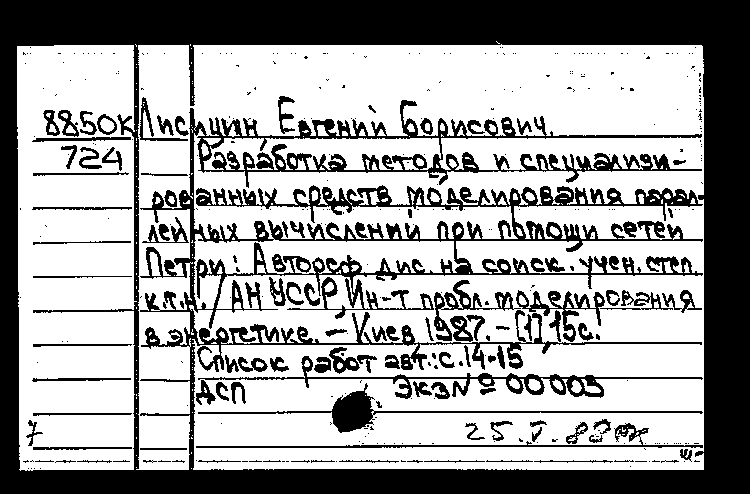 88-50К Лисицин, Евгений Борисович.
724 Разработка методов и специализи-
рованных средств моделирования парал-
лейных вычислений при помощи сетей
Петри: Автореф. дис. на соиск. учен. степ.
к.т.н. / АН УССР, Ин-т пробл. моделирования
в энергетике. – Киев, 1987. – [1], 15 с.
Список работ авт.: с. 14-15
ДСП Экз № 00005
7 25.V.88